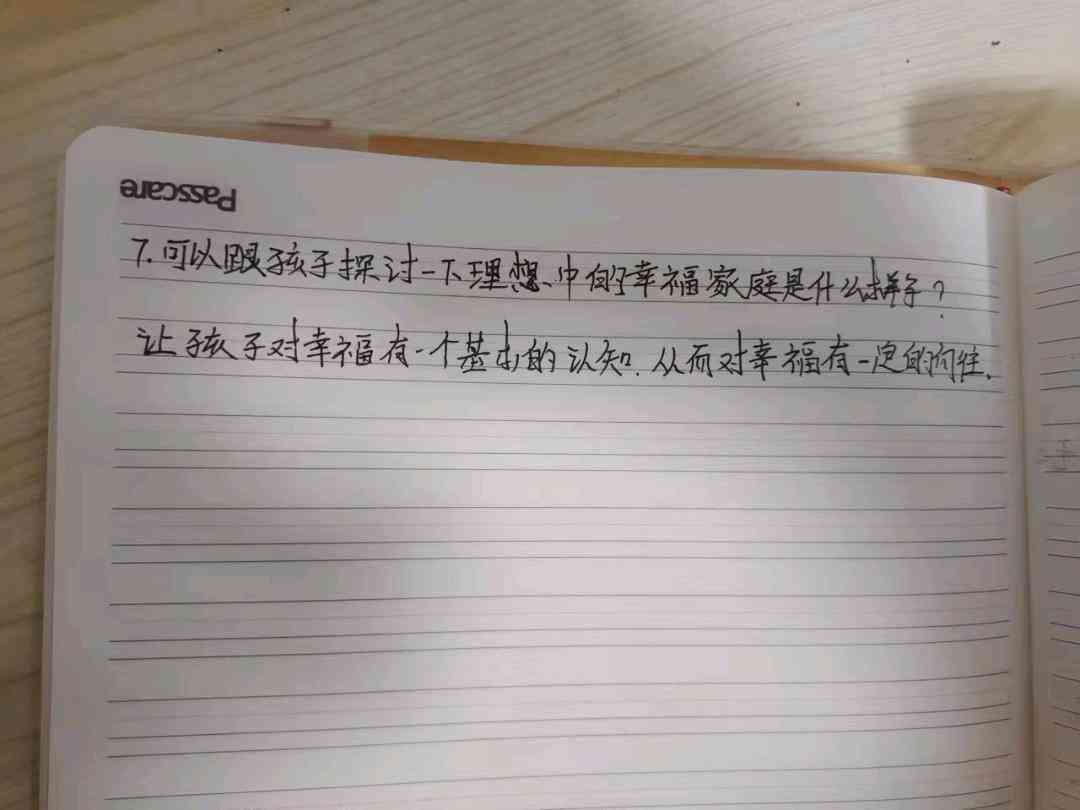 Passcare
7.可以跟孩子探讨一下理想中的幸福家庭是什么样子?
让孩子对幸福有一个基本的认知.从而对幸福有一定的向往.